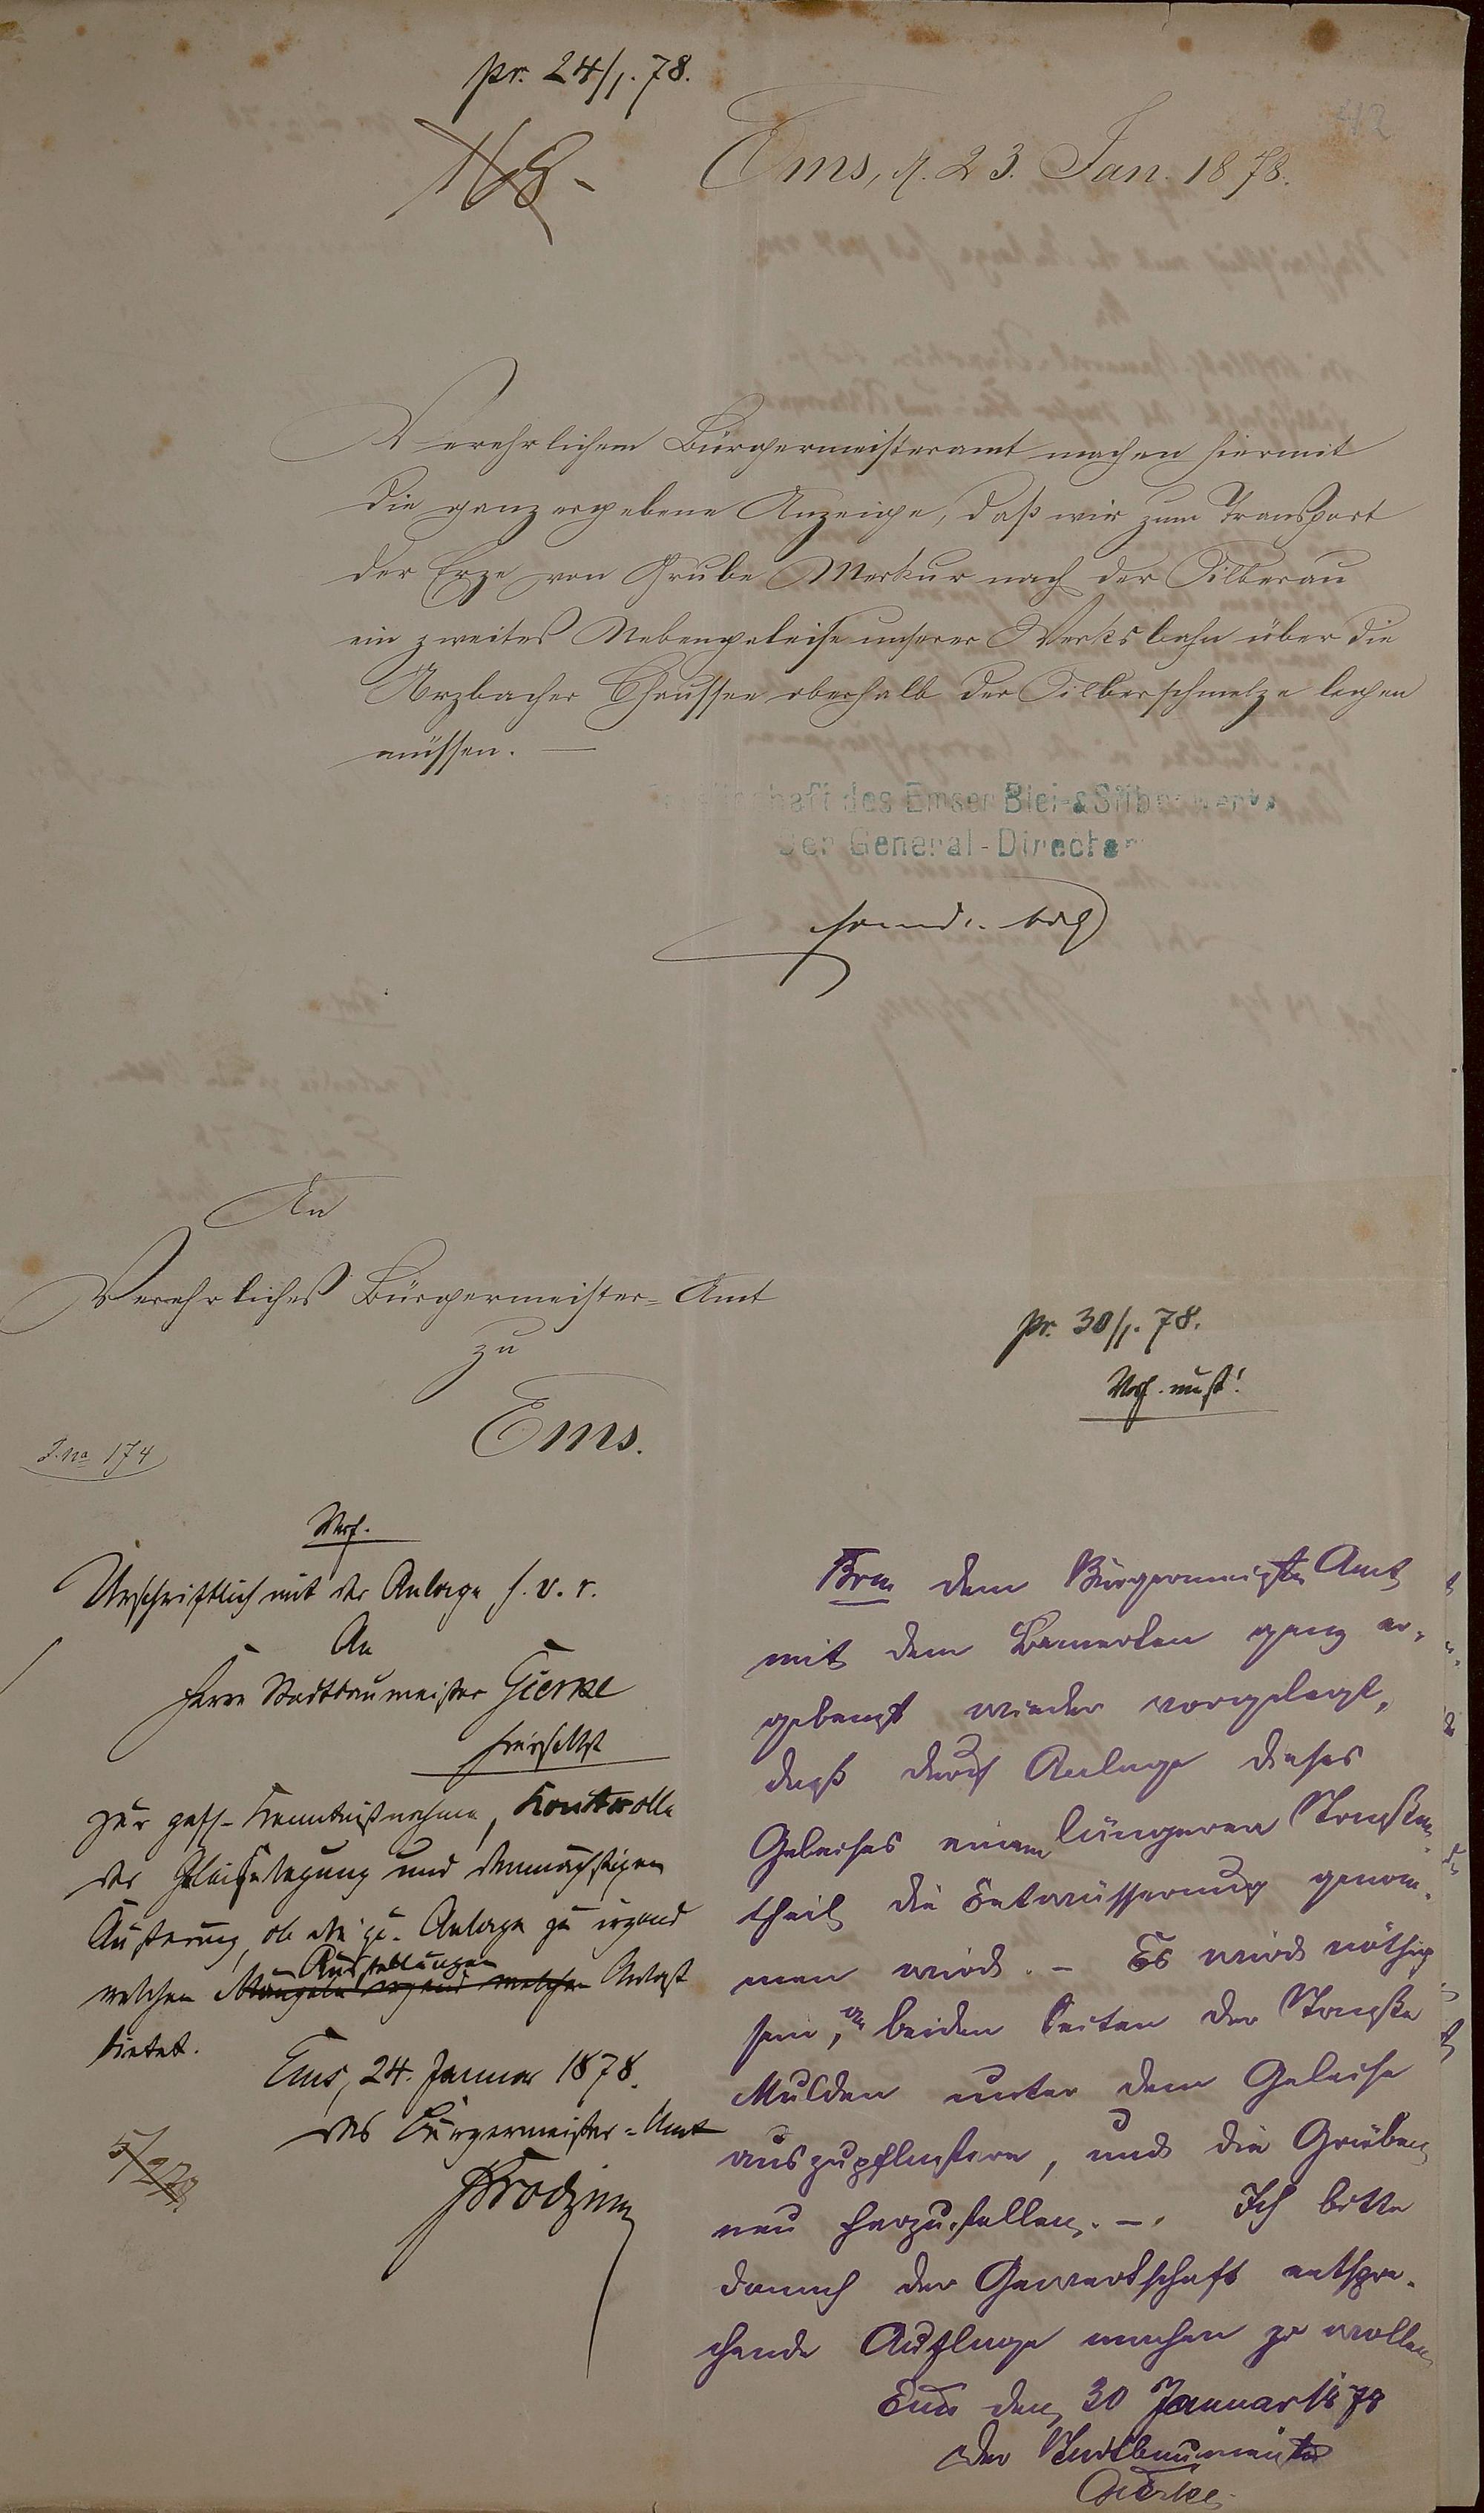 pr. 24/1. 78.
168.
Ems, d. 23. Jan. 1878.
Verehrlichem Bürgermeisteramt machen hiermit
die ganz ergebene Anzeige, daß wir zum Transport
der Erze von Grube Merkur nach der Silberau
ein zweites Nebengeleise unserer Werksbahn über die
Arzbacher Chaussee oberhalb der Silberschmelze legen
müssen. —
Gesellschaft des Emser Blei- & Silberwerks
Der General-Director
An
Verehrliches Bürgermeister-Amt
zu
Ems.
J. No 174
Verf.
Urschriftlich mit der Anlage s. v. r.
An
Herrn Stadtbaumeister Gierke
hierselbst
zur gefl. Kenntnißnahme, Kontrolle
der Gleiselegung und demnächstigen
Äußerung, ob die qu. Anlage zu irgend
welchen Ausstellungen Anlaß
bietet.
Ems, 24. Januar 1878.
Das Bürgermeister-Amt
5/2 78
pr. 30/1. 78.
Verf. umst!
Brm dem Bürgermeister Amt
mit dem Bemerken ganz er-
gebenst wieder vorgelegt,
daß durch Anlage dieses
Geleises einem längeren Straßen-
theil die Entwässerung genom-
men wird. — Es wird nöthig
sein, an beiden Seiten der Straße
Mulden unter dem Geleise
auszupflastern, und die Gräben
neu herzustellen. — Ich bitte
danach der Gewerkschaft entspre-
chende Auflage machen zu wollen
Ems den 30 Januar 1878
Der Stadtbaumeister
Gierke